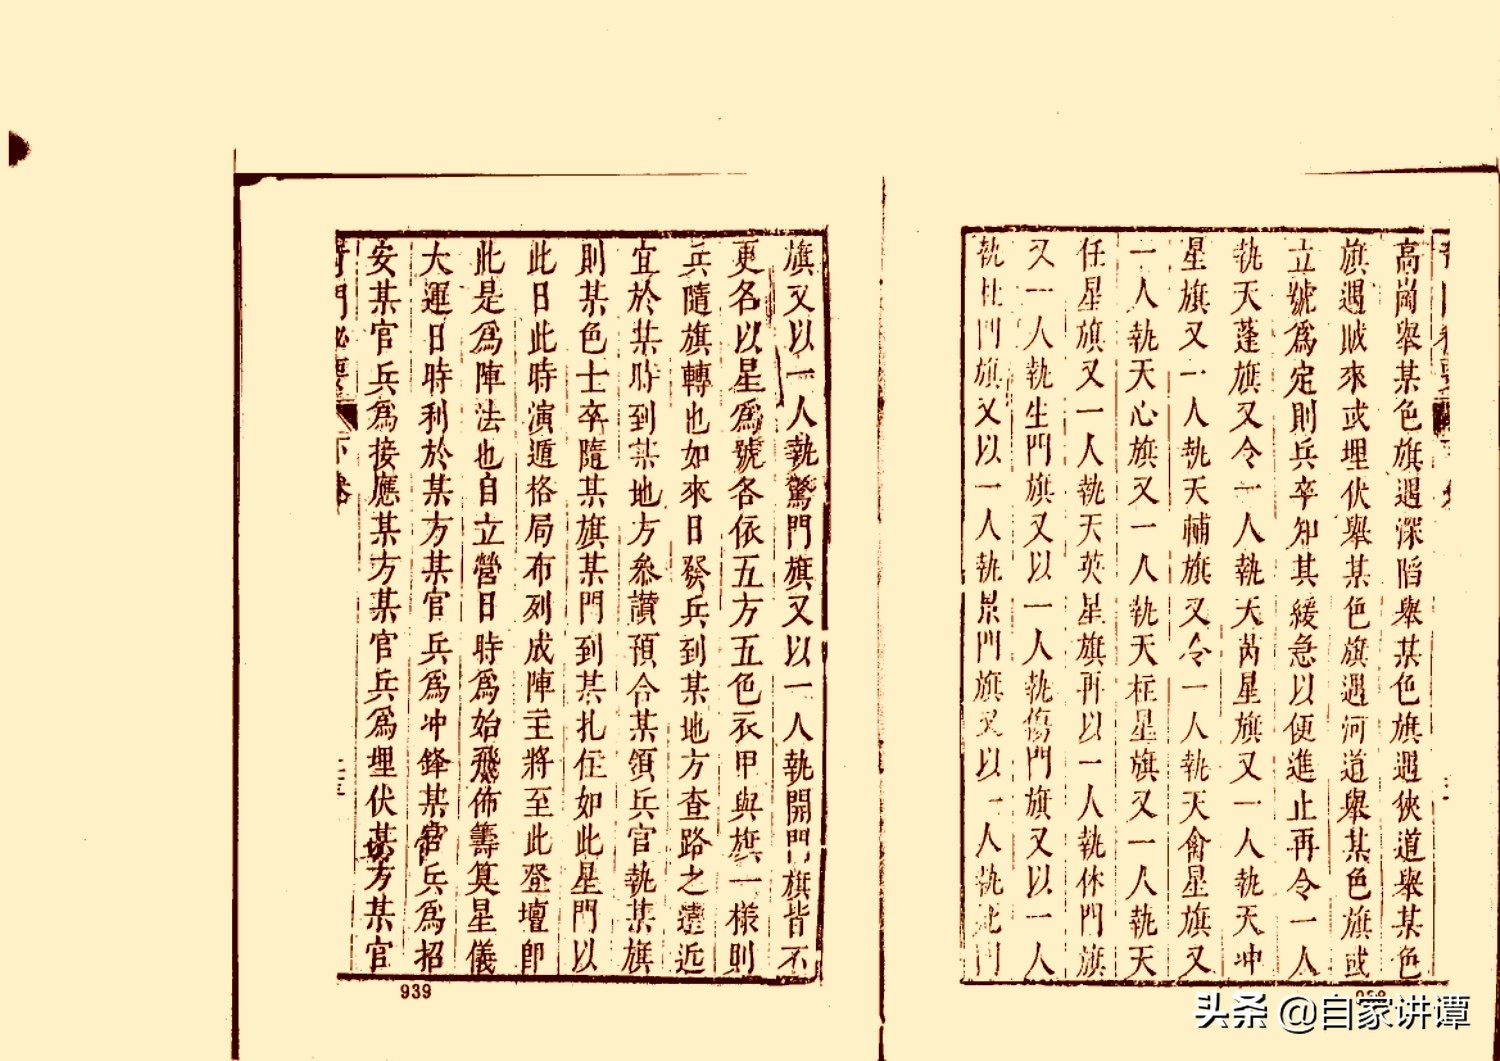 高崗舉某色旗遇深陷舉某色旗遇俠道舉某色
旗遇賊來或埋伏舉某色旗遇河道舉某色旗或
立號爲定則兵卒知其緩急以便進止再令一人
執天蓬旗又令一人執天芮星旗又一人執天冲
星旗又一人執天輔旗又令一人執天禽星旗又
一人執天心旗又一人執天柱星旗又一人執天
任星旗又一人執天英星旗再以一人執休門旗
又一人執生門旗又以一人執傷門旗又以一人
執杜門旗又以一人執景門旗又以一人執死門
旗又以一人執驚門旗又以一人執開門旗皆不
更名以星爲號各依五方五色衣甲與旗一樣則
兵隨旗轉也如來日發兵到某地方查路之遠近
宜於某時到某地方叅讃預令某領兵官執某旗
則某色士卒隨某旗某門到某扎住如此星門以
此日此時演遁格局布列成陣主將至此登壇卽
此是爲陣法也自立營日時爲始飛佈籌筭星儀
大運日時利於某方某官兵爲冲鋒某官兵爲招
安某官兵爲接應某方某官兵爲埋伏某方某官
奇門祕要 下卷
939
头条 @自家讲谭